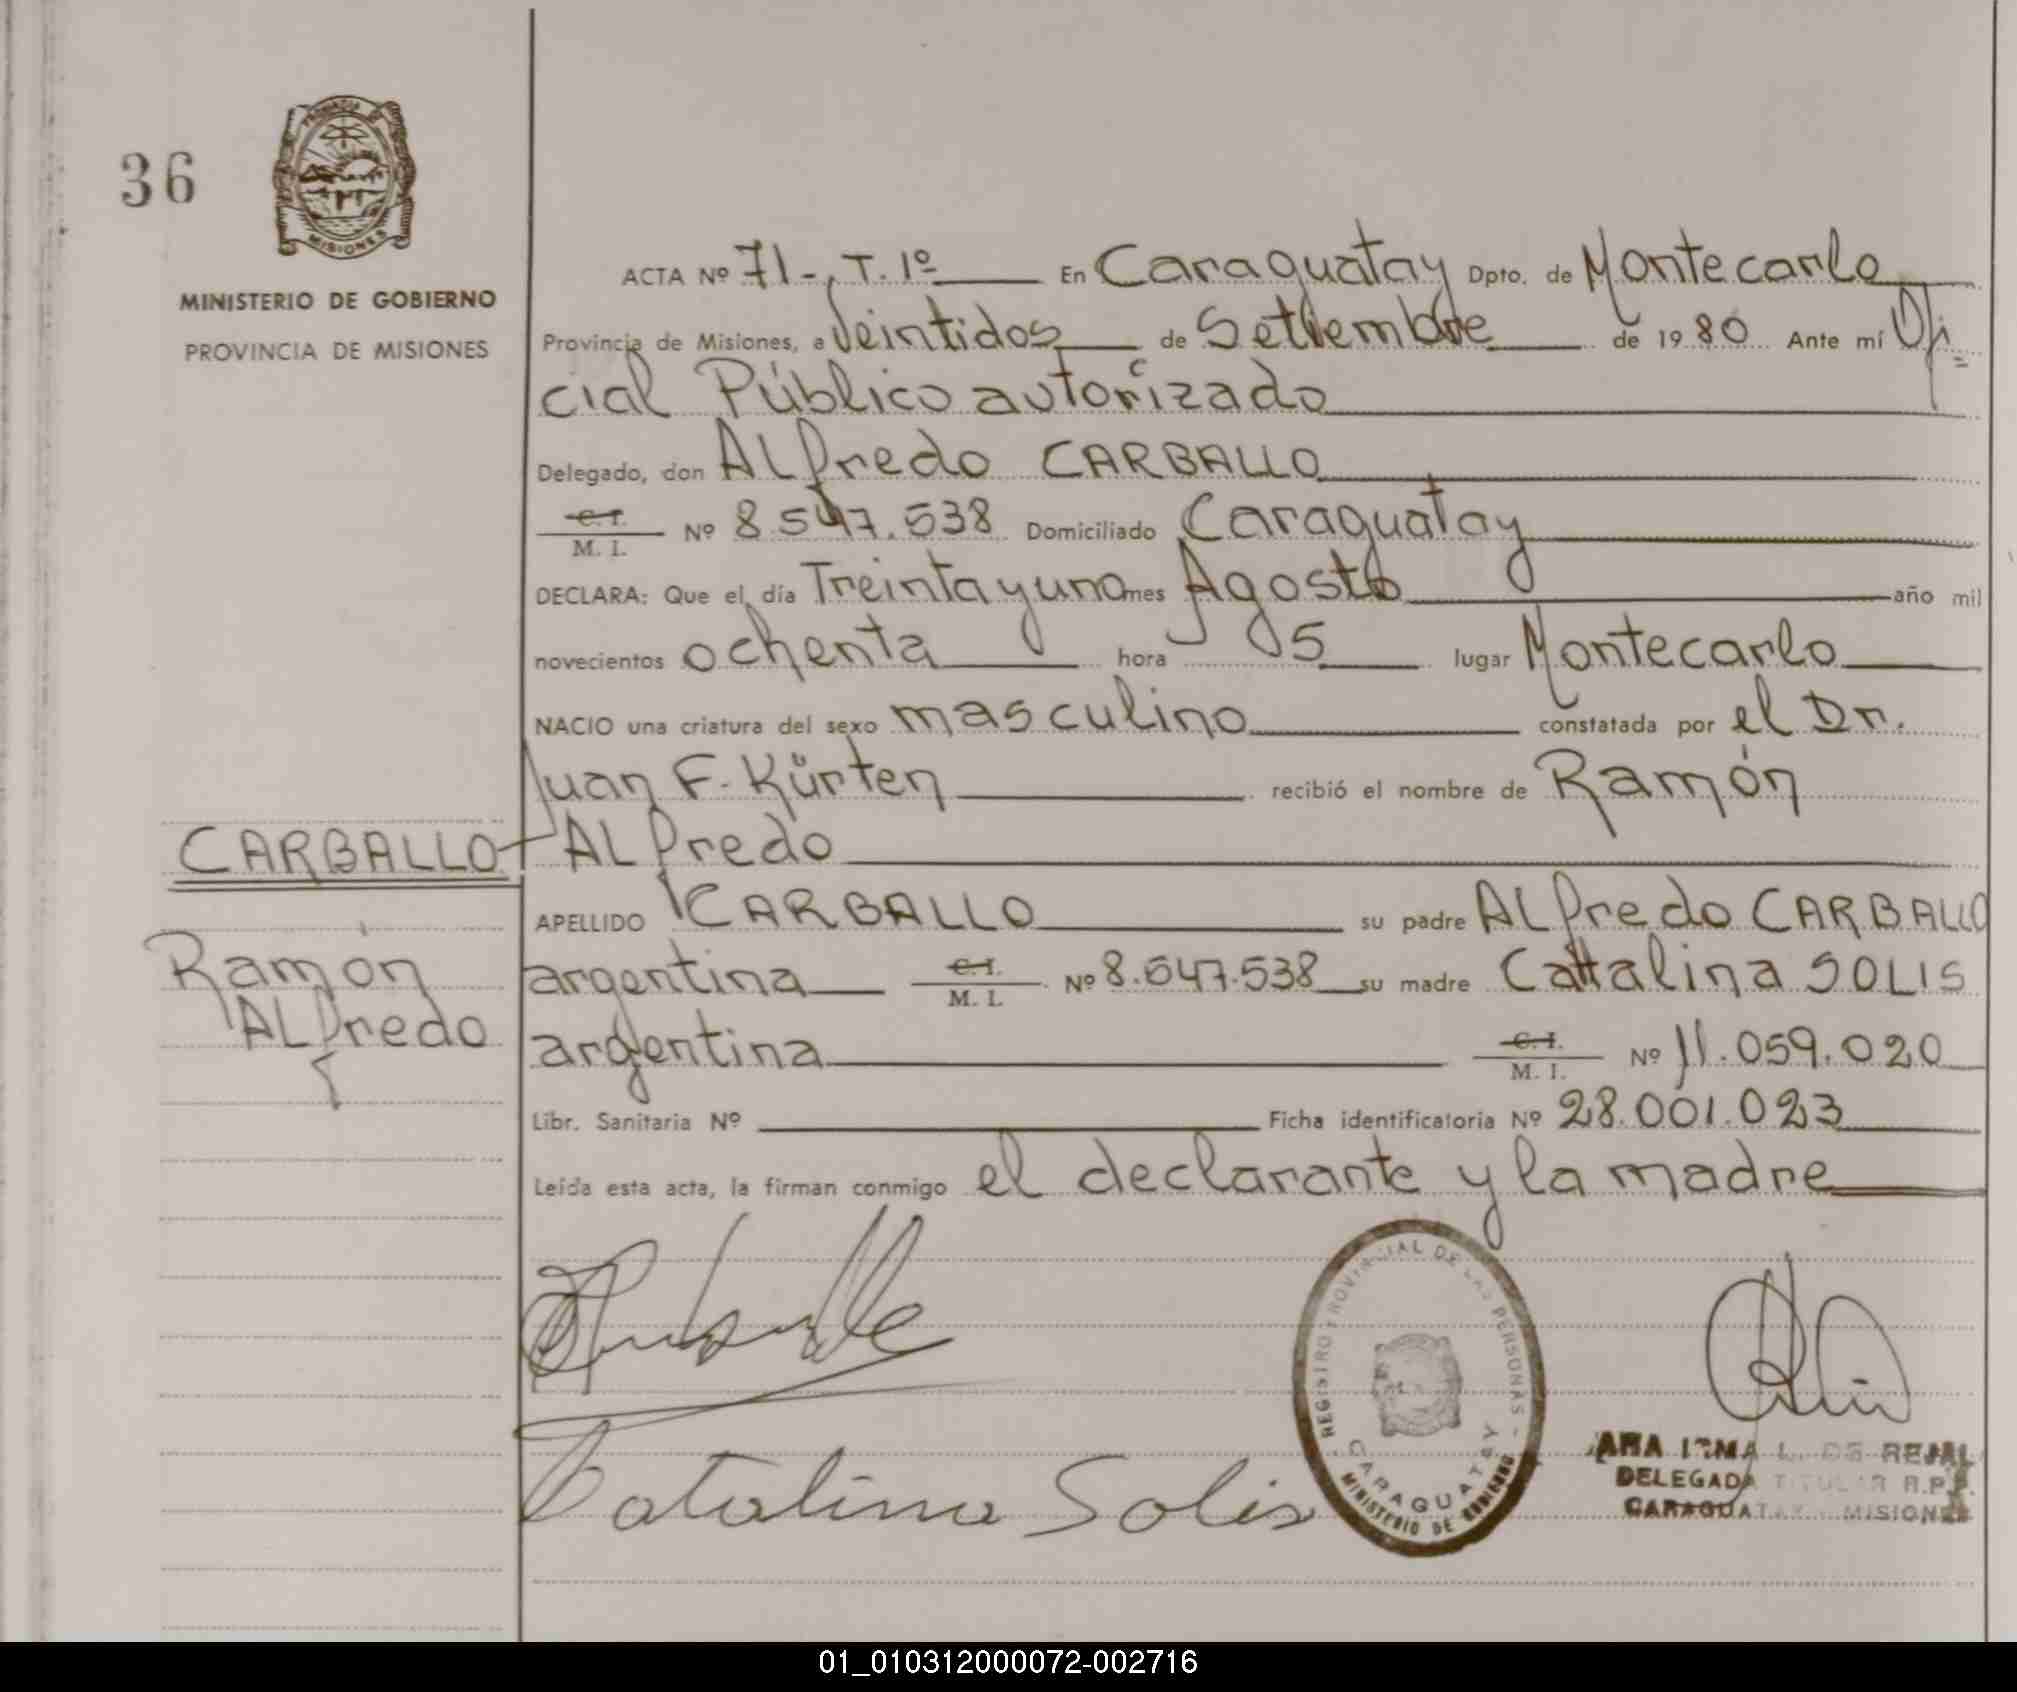 36
PROVINCIA DE
MISIONES
MINISTERIO DE GOBIERNO
PROVINCIA DE MISIONES
ACTA Nº 71-, T. 1º En Caraguatay Dpto. de Montecarlo
Provincia de Misiones, a Veintidos de Setiembre de 1980 Ante mí Ofi=
cial Público autorizado
Delegado, don ALfredo CARBALLO
C. I.
M. I. Nº 8.547.538 Domiciliado Caraguatay
DECLARA: Que el día Treinta y uno mes Agosto año mil
novecientos ochenta hora 5 lugar Montecarlo
NACIO una criatura del sexo masculino constatada por el Dr.
Juan F. Kürten recibió el nombre de Ramón
ALfredo
CARBALLO
APELLIDO CARBALLO su padre ALfredo CARBALLO
Ramón
ALfredo
argentina C. I. M. I. Nº 8.547.538 su madre Catalina SOLIS
argentina C. I. M. I. Nº 11.059.020
Libr. Sanitaria Nº Ficha identificatoria Nº 28.001.023
Leída esta acta, la firman conmigo el declarante y la madre
Catalina Solis
REGISTRO PROVINCIAL DE LAS PERSONAS -
CARAGUATAY
MINISTERIO DE GOBIERNO
ANA IRMA L. DE REJAL
DELEGADA TITULAR R.P.P.
CARAGUATAY - MISIONES
01_010312000072-002716